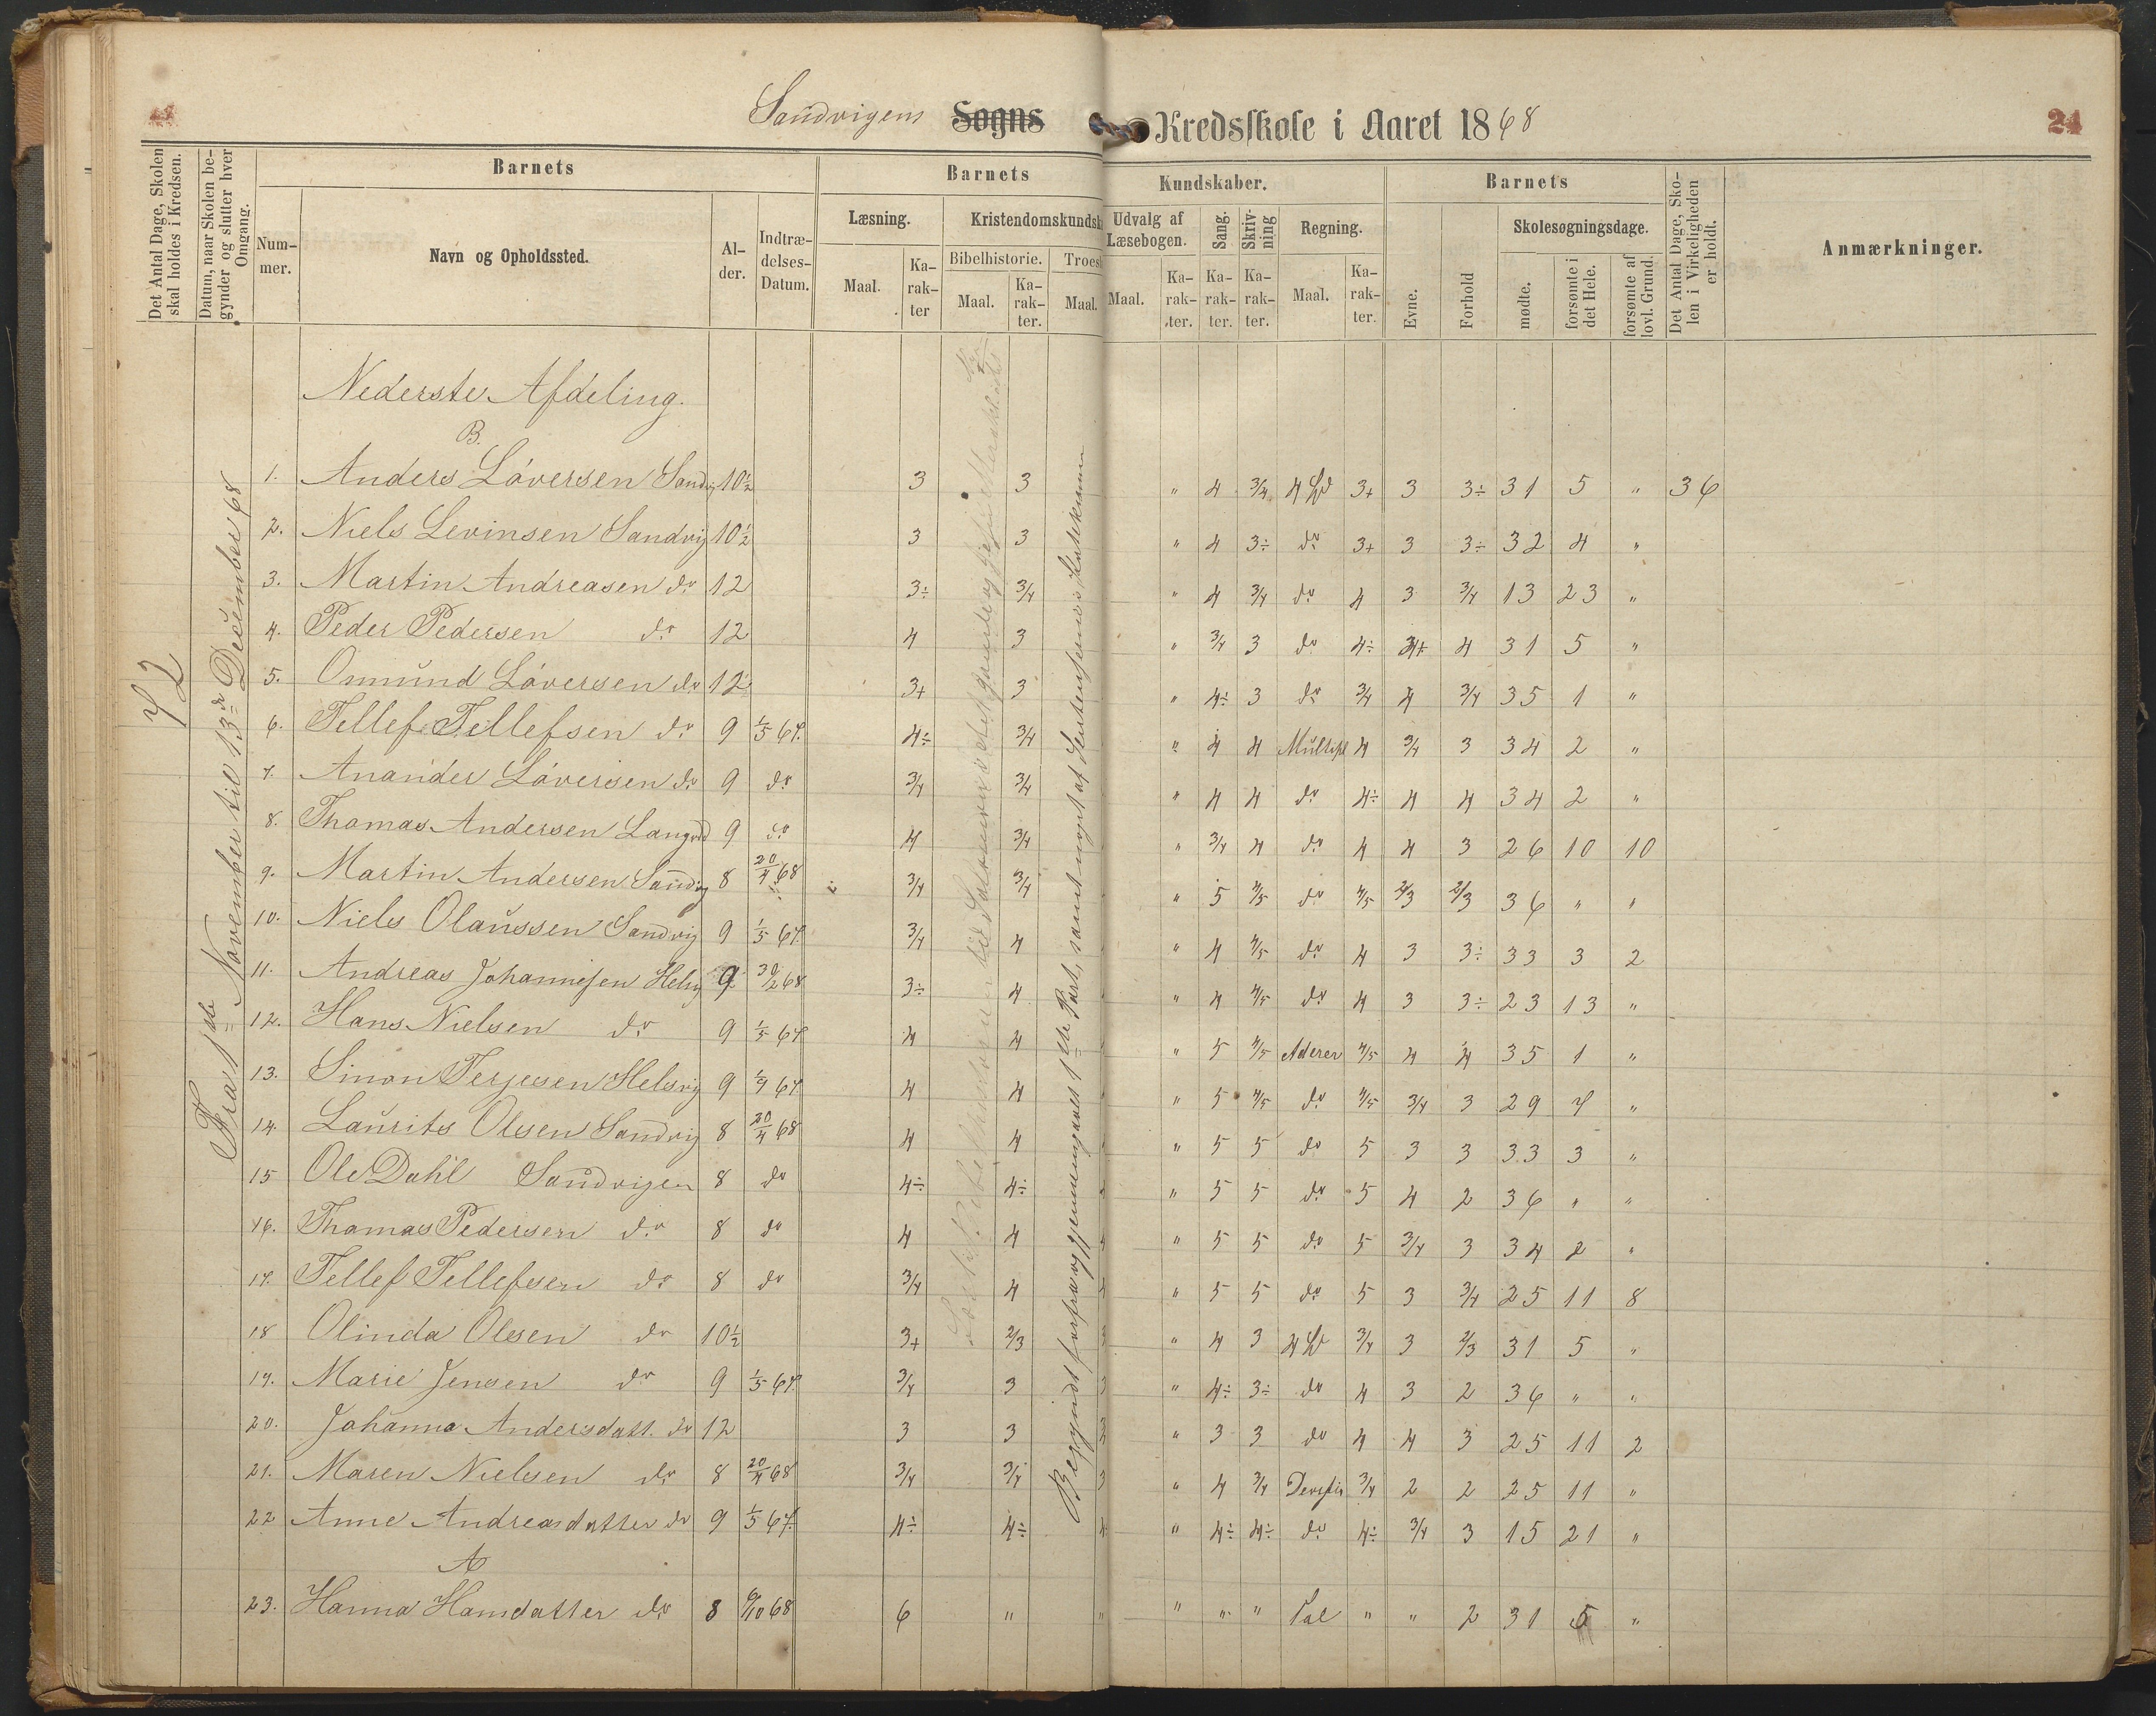 Sandvigens Sogns Kredsskole i Aaret 1868
24
Det Antal Dage, Skolen skal holdes i Kredsen.
Datum, naar Skolen begynder og slutter hver Omgang.
Barnets
Nummer.
Navn og Opholdssted.
Alder.
Indtrædelses-Datum.
Barnets Kundskaber.
Læsning.
Maal.
Karakter
Kristendomskundsk
Bibelhistorie.
Maal.
Karakter.
Troes
Maal.
Udvalg af Læsebogen.
Maal.
Karakter.
Sang.
Karakter.
Skrivning
Karakter.
Regning.
Maal.
Karakter.
Barnets
Evne.
Forhold
Skolesøgningsdage.
mødte.
forsømte i det Hele.
forsømte af lovl. Grund.
Det Antal Dage, Skolen i Virkeligheden er holdt.
Anmærkninger.
72
Fra 1ste November til 13de December 68
Nederste Afdeling.
B.
1. Anders Löversen Sandvig 10½ 3 3 " 4 3/4 4 3+ 3 3÷ 31 5 " 36
2. Niels Levinsen Sandvig 10½ 3 3 " 4 3÷ do 3+ 3 3÷ 32 4 "
3. Martin Andreasen do 12 3÷ 3/4 " 4 3/4 do 4 3 3/4 13 23 "
4. Peder Pedersen do 12 4 3 " 3/4 3 do 4÷ 4 31 5 "
5. Omund Löversen do 12 3+ 3 " 4÷ 3 do 3/4 4 3/4 35 1 "
6. Tellef Tellefsen do 9 1/5 67. 4÷ 3/4 " 4 4 Multipl 4 3/4 3 34 2 "
7. Anander Löversen do 9 do 3/4 3/4 " 4 4 do 4÷ 4 4 34 2 "
8. Thomas Andersen 9 do 4 3/4 " 3/4 4 do 4 4 3 26 10 10
9. Martin Andersen Sandvig 8 20/4 68 3/4 3/4 " 5 4/5 do 4/5 2/3 2/3 36 " "
10. Niels Olaussen Sandvig 9 1/5 67. 3/4 4 " 4 4/5 do 4 3 3÷ 33 3 2
11. Andreas Johannesen 9 68 3÷ 4 " 4 4/5 do 4 3 3÷ 23 13 "
12. Hans Nielsen do 9 1/5 67 4 4 " 5 4/5 Aderer 4/5 4 4 35 1 "
13. Simon Terjesen Helsvig 9 67. 4 4 " 5 4/5 do 4/5 3/4 3 29 7 "
14. Laurits Olsen Sandvig 8 20/4 68 4 4 " 5 5 do 5 3 3 33 3 "
15 Ole Dahl Sandvigen 8 do 4÷ 4÷ " 5 5 do 5 4 2 36 " "
16. Thomas Pedersen do 8 do 4 4 " 5 5 do 5 3/4 3 34 2 "
17. Tellef Tellefsen do 8 do 3/4 4 " 5 5 do 5 3 3/4 25 11 8
18 Olinda Olesen do 10½ 3+ 2/3 3 " 4 3 4 3/4 3 2/3 31 5 "
19. Marie Jensen do 9 1/5 67. 3/4 3 3 " 4÷ 3÷ do 4 3 2 36 " "
20. Johanna Andersdatt. do 12 3 3 3 " 3 3 do 4 4 3 25 11 2
21. Maren Nielsen do 8 20/4 68 3/4 3/4 3 " 4 3/4 3/4 2 2 25 11 "
22 Anne Andreasdatter do 9 1/5 67. 4÷ 4÷ 4 " 4÷ 4÷ do 4÷ 3/4 3 15 21 "
A
23. Hanna Hansdatter do 8 6/10 68 6 " " " " " Tal " " 2 31 5 "